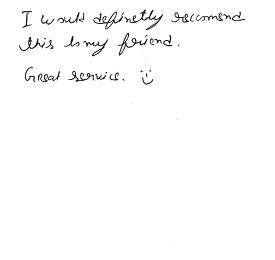 I would definetly reccomend
this to my friend.
Great service. :)